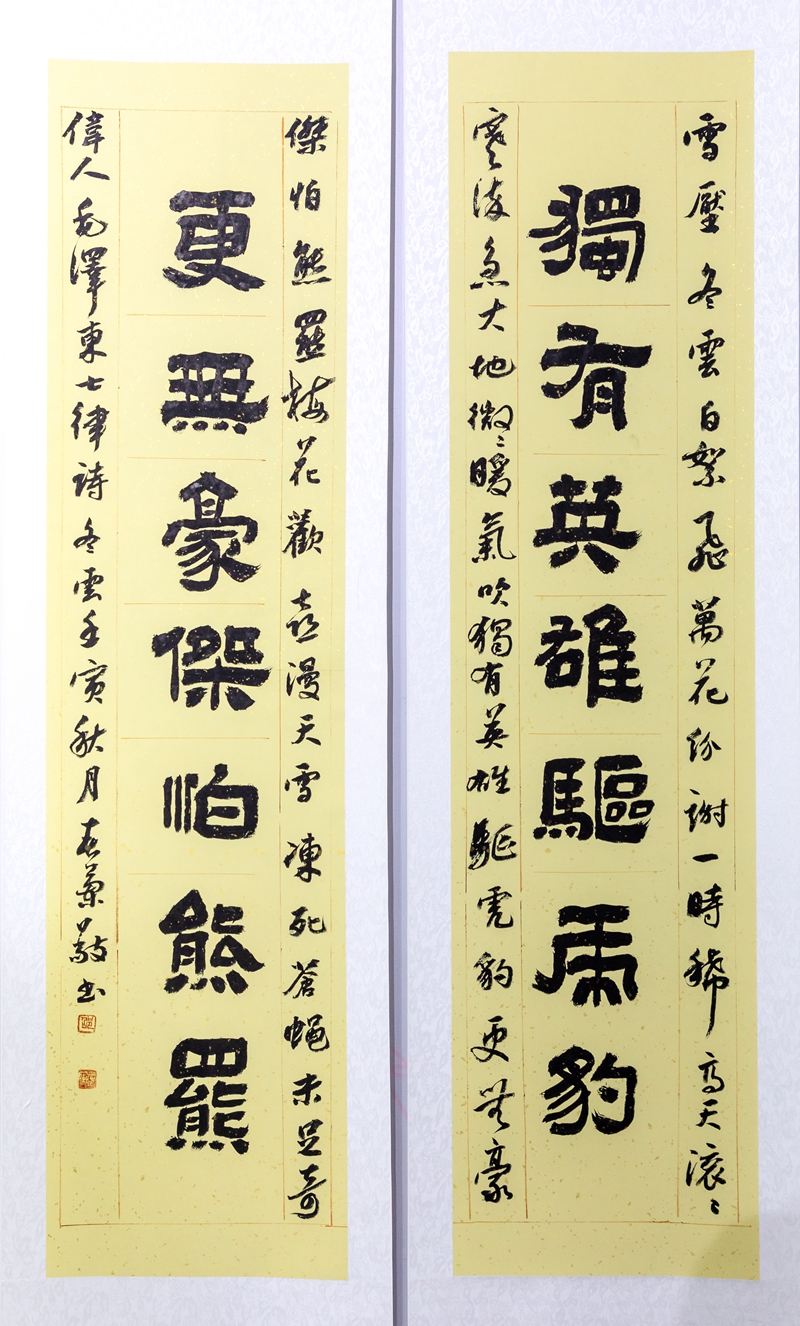 雪壓冬雲白絮飛萬花紛謝一時稀高天滾〻
獨有英雄驅虎豹
寒流急大地微〻暖氣吹獨有英雄驅虎豹更無豪
傑怕熊羆梅花歡喜漫天雪凍死蒼蠅未足奇
更無豪傑怕熊羆
偉人毛澤東七律詩冬雲壬寅秋月蘭敬书